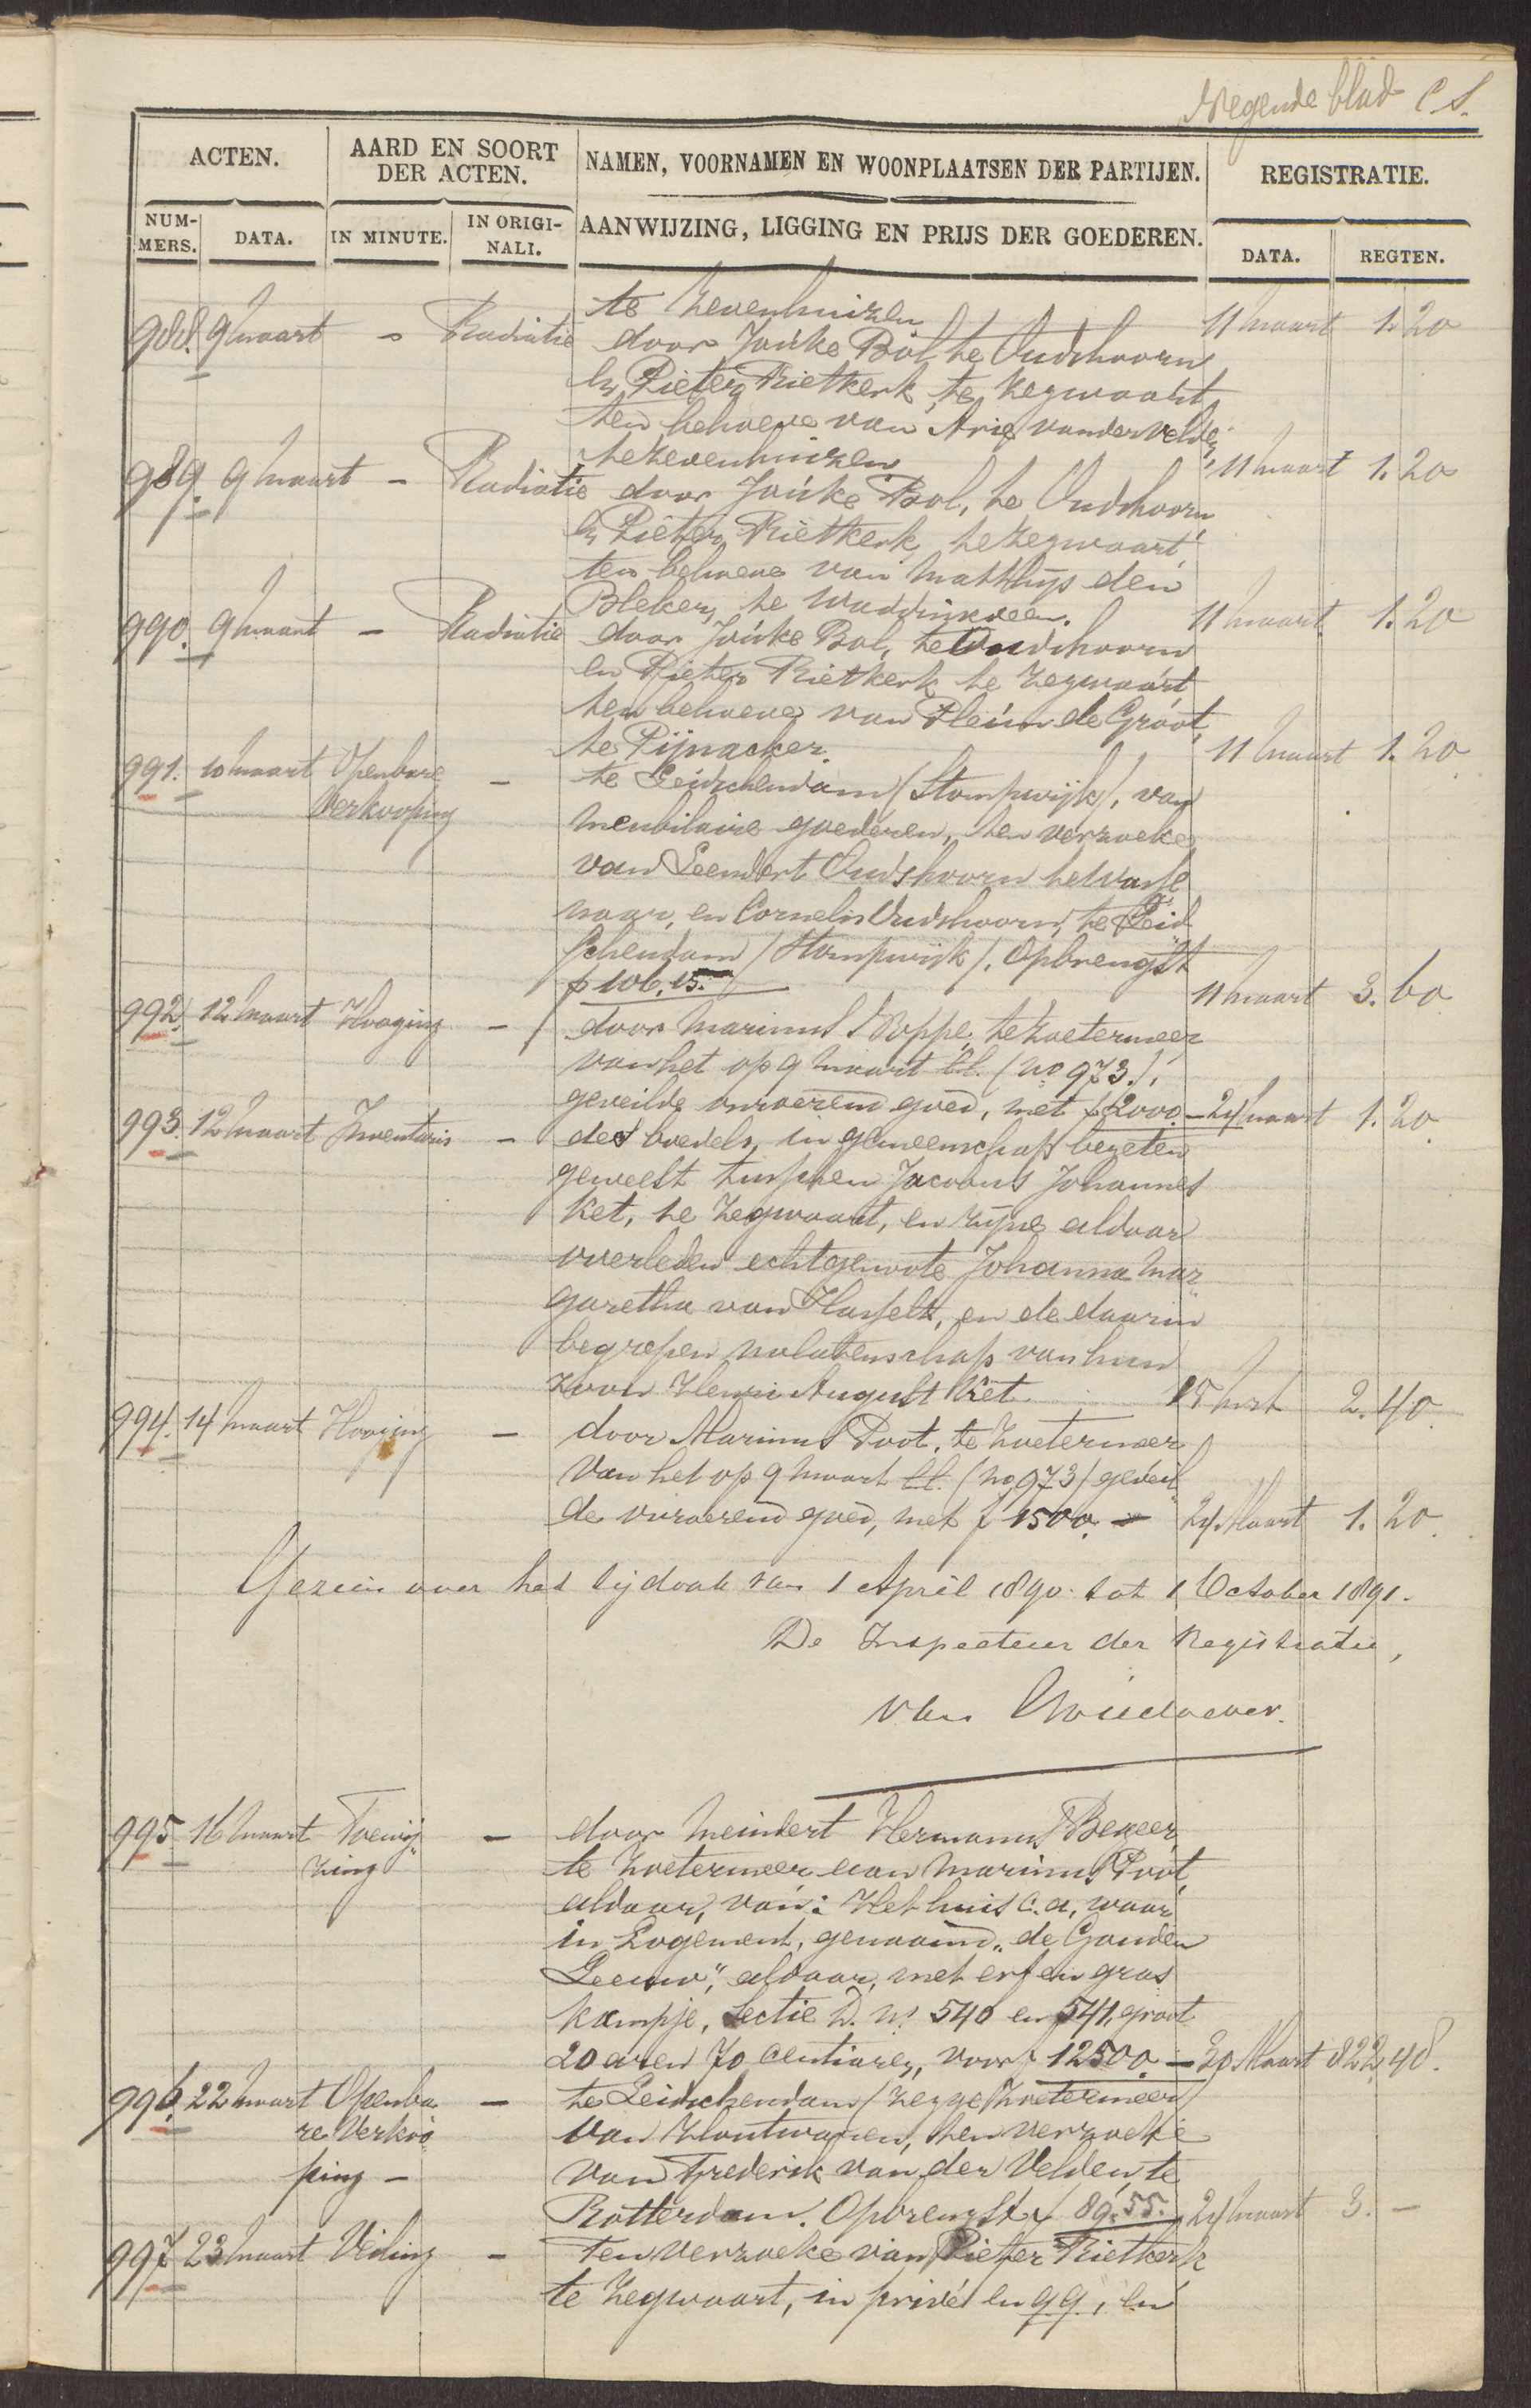 Negende blad C S.
ACTEN.
AARD EN SOORT DER ACTEN.
NAMEN, VOORNAMEN EN WOONPLAATSEN DER PARTIJEN.
REGISTRATIE.
NUM-MERS.
DATA.
IN MINUTE.
IN ORIGI-NALI.
AANWIJZING, LIGGING EN PRIJS DER GOEDEREN.
DATA.
REGTEN.
te Zevenhuizen 11 Maart 1. 20
988. 9 Maart - Radiatie door Jouke Bol te Oudshoorn
en Pieter Rietkerk, te Zegwaart,
ten behoeve van Arie van der Velden,
te Zevenhuizen 11 Maart 1. 20
989. 9 Maart - Radiatie door Jouke Bol, te Oudshoorn
en Pieter Rietkerk, te Zegwaart,
ten behoeve van Matthijs den
Bleker, te Waddinxveen. 11 Maart 1. 20
990. 9 Maart - Radiatie door Jouke Bol, te Oudshoorn
en Pieter Rietkerk te Zegwaart,
ten behoeve van Pleun de Groot,
te Pijnacker. 11 Maart 1. 20
991. 10 Maart Openbare - te Leidschendam (Stompwijk), van
Verkooping meubilaire goederen, ten verzoeke
van Leendert Oudshoorn te Wasse
naar, en Cornelis Oudshoorn, te Leid
schendam (Stompwijk). Opbrengst
f 106.15. 11 Maart 3. 60
992. 12 Maart Hooging - door Marinus Poppe, te Zoetermeer
van het op 9 Maart ll. (No 973.),
geveilde onroerend goed, met f 2000. - 24 Maart 1. 20.
993. 12 Maart Inventaris - des boedels, in gemeenschap bezeten
geweest tusschen Jacobus Johannes
Ket, te Zegwaart, en zijne aldaar
overleden echtgenoote Johanna Mar
garetha van Hasselt, en de daarin
begrepen nalatenschap van hun
zoon Henri August Ket 15 Mrt 2. 40.
994. 14 Maart Hooging - door Marinus Poot, te Zoetermeer
van het op 9 Maart ll. (No 973) geveil
de onroerend goed, met f 1500. - 24 Maart 1. 20.
Gezien over het tijdvak van 1 April 1890 tot 1 October 1891.
De Inspecteur der Registratie,
van
995. 16 Maart Toewij - door Meindert Hermanus Bekeer,
zing te Zoetermeer, aan Marinus Poot,
aldaar, van: Het huis c.a, waar
in Logement, genaamd "de Gouden
Leeuw", aldaar, met erf en gras
kampje, Sectie D. No 540 en 541, groot
20 aren 70 centiaren, voor f 12500. - 30 Maart 822 48.
996. 22 Maart Openba - te Leidschendam (zegge Zoetermeer)
re Verkoo van Houtwaren, ten verzoeke
ping - van Frederik van der Velden, te
Rotterdam. Opbrengst f 89.55. 24 Maart 3. -
997 23 Maart Veiling - Ten verzoeke van Pieter Rietkerk
te Zegwaart, in privé en qq, en